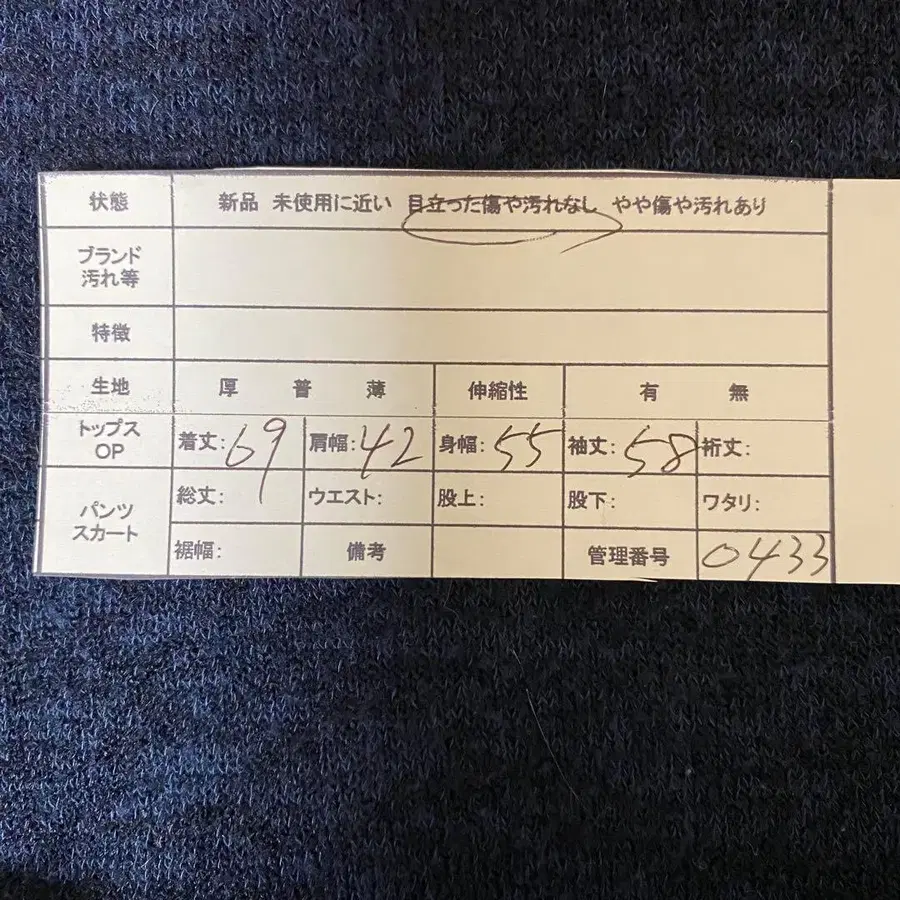 状態 新品 未使用に近い 目立った傷や汚れなし やや傷や汚れあり
ブランド
汚れ等
特徴
生地 厚 普 薄 伸縮性 有 無
トップス
OP
着丈:69 肩幅:42 身幅:55 袖丈:58 裄丈:
パンツ
スカート
総丈: ウエスト: 股上: 股下: ワタリ:
裾幅: 備考 管理番号 0433